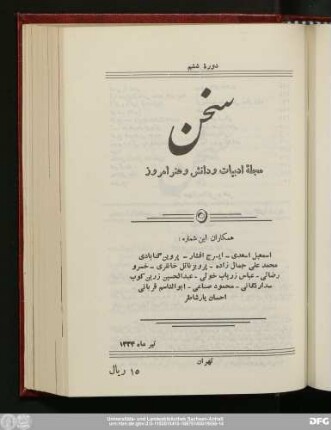 دورهٔ ششم
سخن
مجلهٔ ادبیات و دانش و هنر امروز
همکاران این شماره:
اسمعیل اسعدی - ایرج افشار - پروین گنابادی
محمد علی جمال زاده - پرویز ناتل خانلری - خسرو
رضائی - عباس زریاب خوئی - عبدالحسین زرین کوب
محمود صناعی - ابوالقاسم قربانی
احسان یارشاطر
تیر ماه ۱۳۳۴
تهران
۱۵ ریال
Universitäts- und Landesbibliothek Sachsen-Anhalt
DFG